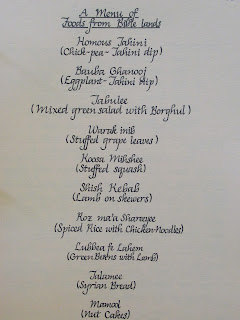 A Menu of
Foods from Bible lands
Homous Tahini
(Chick-pea-Tahini dip)
Bauba Ghanooj
(Eggplant-Tahini dip)
Tabulee
(Mixed green salad with Borghul)
Warak inib
(Stuffed grape leaves)
Koosa Mihshee
(Stuffed squash)
Shish Kebab
(Lamb on skewers)
Roz ma'a Sharayee
(Spiced Rice with Chicken-Noodles)
Lubbea ft Lahem
(Green Beans with Lamb)
Talamee
(Syrian Bread)
Mamool
(Nut Cakes)